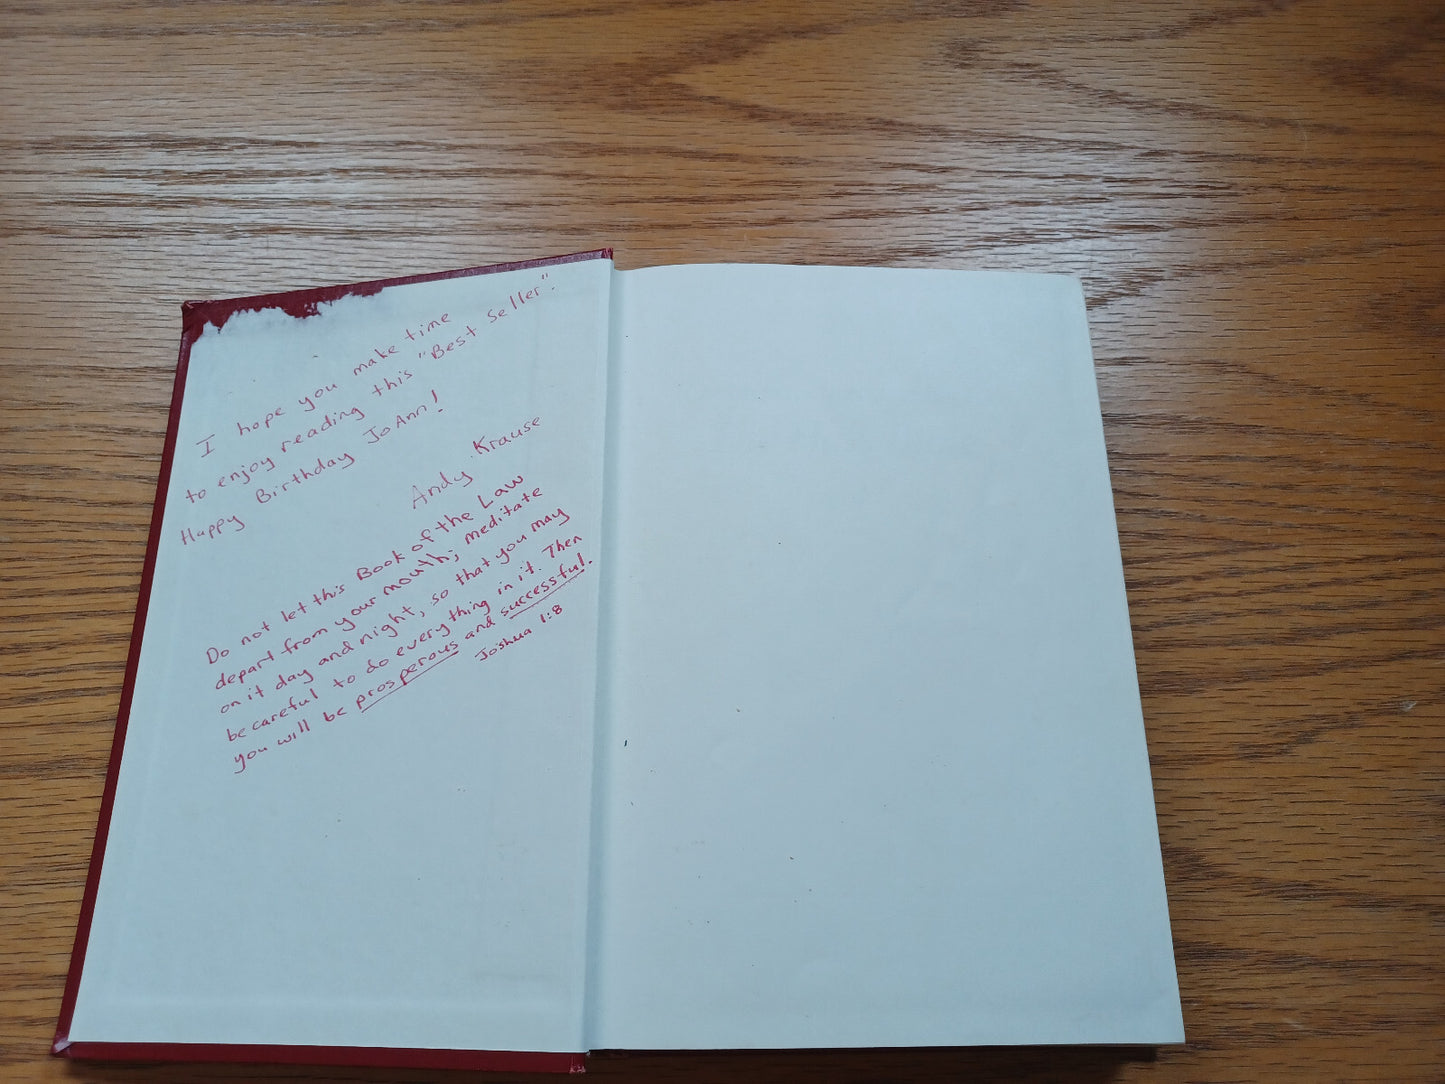 I hope you make time
to enjoy reading this "Best Seller".
Happy Birthday JoAnn!
Andy Krause
Do not let this Book of the Law
depart from your mouth; meditate
on it day and night, so that you may
be careful to do everything in it. Then
you will be prosperous and successful.
Joshua 1:8